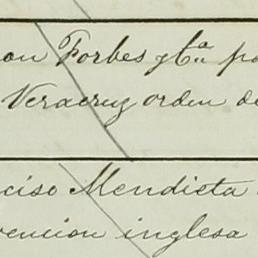 on Forbes y Cª po
Veracruz orden de
ciso Mendista
vencion inglesa